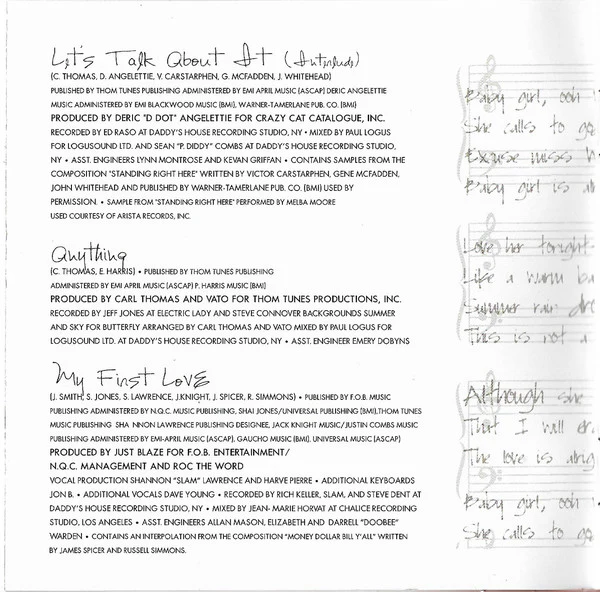 Let's Talk About It (Interlude)
(C. THOMAS, D. ANGELETTIE, V. CARSTARPHEN, G. MCFADDEN, J. WHITEHEAD)
PUBLISHED BY THOM TUNES PUBLISHING ADMINISTERED BY EMI APRIL MUSIC (ASCAP) DERIC ANGELETTIE
MUSIC ADMINISTERED BY EMI BLACKWOOD MUSIC (BMI), WARNER-TAMERLANE PUB. CO. (BMI)
PRODUCED BY DERIC "D DOT" ANGELETTIE FOR CRAZY CAT CATALOGUE, INC.
RECORDED BY ED RASO AT DADDY'S HOUSE RECORDING STUDIO, NY • MIXED BY PAUL LOGUS
FOR LOGUSOUND LTD. AND SEAN "P. DIDDY" COMBS AT DADDY'S HOUSE RECORDING STUDIO,
NY • ASST. ENGINEERS LYNN MONTROSE AND KEVAN GRIFFAN • CONTAINS SAMPLES FROM THE
COMPOSITION "STANDING RIGHT HERE" WRITTEN BY VICTOR CARSTARPHEN, GENE MCFADDEN,
JOHN WHITEHEAD AND PUBLISHED BY WARNER-TAMERLANE PUB. CO. (BMI) USED BY
PERMISSION. • SAMPLE FROM "STANDING RIGHT HERE" PERFORMED BY MELBA MOORE
USED COURTESY OF ARISTA RECORDS, INC.
Anything
(C. THOMAS, E. HARRIS) • PUBLISHED BY THOM TUNES PUBLISHING
ADMINISTERED BY EMI APRIL MUSIC (ASCAP) P. HARRIS MUSIC (BMI)
PRODUCED BY CARL THOMAS AND VATO FOR THOM TUNES PRODUCTIONS, INC.
RECORDED BY JEFF JONES AT ELECTRIC LADY AND STEVE CONNOVER BACKGROUNDS SUMMER
AND SKY FOR BUTTERFLY ARRANGED BY CARL THOMAS AND VATO MIXED BY PAUL LOGUS FOR
LOGUSOUND LTD. AT DADDY'S HOUSE RECORDING STUDIO, NY • ASST. ENGINEER EMERY DOBYNS
My First Love
(J. SMITH, S. JONES, S. LAWRENCE, J.KNIGHT, J. SPICER, R. SIMMONS) • PUBLISHED BY F.O.B. MUSIC
PUBLISHING ADMINISTERED BY N.Q.C. MUSIC PUBLISHING, SHAI JONES/UNIVERSAL PUBLISHING (BMI),THOM TUNES
MUSIC PUBLISHING SHA NNON LAWRENCE PUBLISHING DESIGNEE, JACK KNIGHT MUSIC/JUSTIN COMBS MUSIC
PUBLISHING ADMINISTERED BY EMI-APRIL MUSIC (ASCAP), GAUCHO MUSIC (BMI), UNIVERSAL MUSIC (ASCAP)
PRODUCED BY JUST BLAZE FOR F.O.B. ENTERTAINMENT/
N.Q.C. MANAGEMENT AND ROC THE WORD
VOCAL PRODUCTION SHANNON "SLAM" LAWRENCE AND HARVE PIERRE • ADDITIONAL KEYBOARDS
JON B. • ADDITIONAL VOCALS DAVE YOUNG • RECORDED BY RICH KELLER, SLAM, AND STEVE DENT AT
DADDY'S HOUSE RECORDING STUDIO, NY • MIXED BY JEAN- MARIE HORVAT AT CHALICE RECORDING
STUDIO, LOS ANGELES • ASST. ENGINEERS ALLAN MASON, ELIZABETH AND DARRELL "DOOBEE"
WARDEN • CONTAINS AN INTERPOLATION FROM THE COMPOSITION "MONEY DOLLAR BILL Y'ALL" WRITTEN
BY JAMES SPICER AND RUSSELL SIMMONS.
Baby girl, ooh
She calls to
Excuse miss
Baby girl is
Love her tonight
Like a warm
Summer rain
This is not a
Although she
That I will
The love is
Baby girl, ooh
She calls to